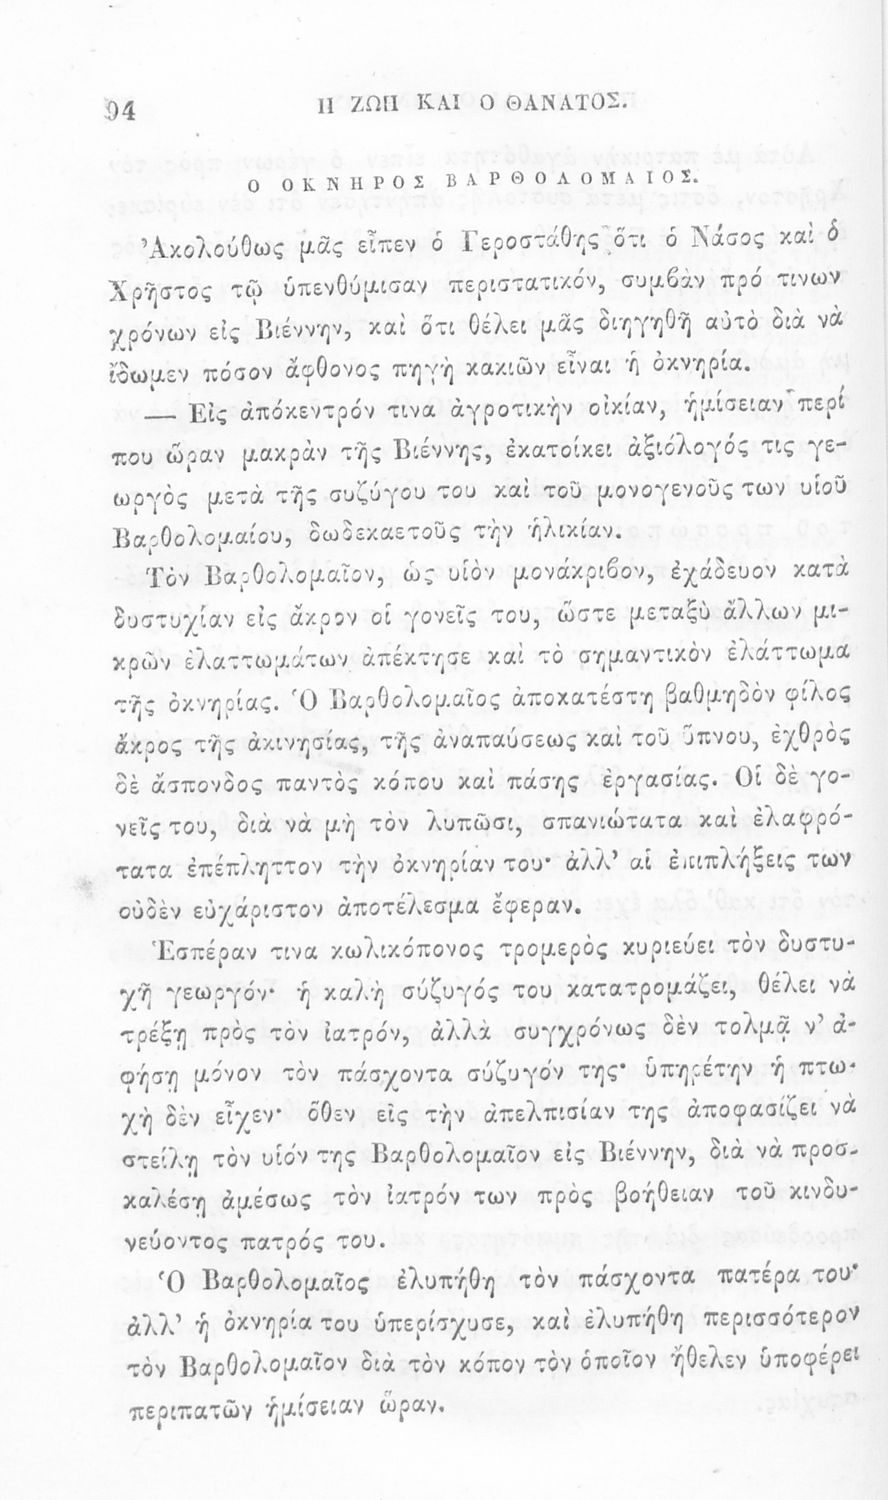 94
Η ΖΩΗ ΚΑΙ Ο ΘΑΝΑΤΟΣ.
Ο ΟΚΝΗΡΟΣ ΒΑΡΘΟΛΟΜΑΙΟΣ.
Ἀκολούθως μᾶς εἶπεν ὁ Γεροστάθης ὅτι ὁ Νάσος καὶ ὁ
Χρῆστος τῷ ὑπενθύμισαν περιστατικόν, συμβὰν πρό τινων
χρόνων εἰς Βιέννην, καὶ ὅτι θέλει μᾶς διηγηθῆ αὐτὸ διὰ νὰ
ἴδωμεν πόσον ἄφθονος πηγὴ κακιῶν εἶναι ἡ ὀκνηρία.
— Εἰς ἀπόκεντρόν τινα ἀγροτικὴν οἰκίαν, ἡμίσειαν περί
που ὥραν μακρὰν τῆς Βιέννης, ἐκατοίκει ἀξιόλογός τις γε-
ωργὸς μετὰ τῆς συζύγου του καὶ τοῦ μονογενοῦς των υἱοῦ
Βαρθολομαίου, δωδεκαετοῦς τὴν ἡλικίαν.
Τὸν Βαρθολομαῖον, ὡς υἱὸν μονάκριβον, ἐχάδευον κατὰ
δυστυχίαν εἰς ἄκρον οἱ γονεῖς του, ὥστε μεταξὺ ἄλλων μι-
κρῶν ἐλαττωμάτων ἀπέκτησε καὶ τὸ σημαντικὸν ἐλάττωμα
τῆς ὀκνηρίας. Ὁ Βαρθολομαῖος ἀποκατέστη βαθμηδὸν φίλος
ἄκρος τῆς ἀκινησίας, τῆς ἀναπαύσεως καὶ τοῦ ὕπνου, ἐχθρὸς
δὲ ἄσπονδος παντὸς κόπου καὶ πάσης ἐργασίας. Οἱ δὲ γο-
νεῖς του, διὰ νὰ μὴ τὸν λυπῶσι, σπανιώτατα καὶ ἐλαφρό-
τατα ἐπέπληττον τὴν ὀκνηρίαν του· ἀλλ' αἱ ἐπιπλήξεις των
οὐδὲν εὐχάριστον ἀποτέλεσμα ἔφεραν.
Ἑσπέραν τινα κωλικόπονος τρομερὸς κυριεύει τὸν δυστυ-
χῆ γεωργόν· ἡ καλὴ σύζυγός του κατατρομάζει, θέλει νὰ
τρέξῃ πρὸς τὸν ἰατρόν, ἀλλὰ συγχρόνως δὲν τολμᾷ ν' ἀ-
φήσῃ μόνον τὸν πάσχοντα σύζυγόν της· ὑπηρέτην ἡ πτω-
χὴ δὲν εἶχεν· ὅθεν εἰς τὴν ἀπελπισίαν της ἀποφασίζει νὰ
στείλῃ τὸν υἱόν της Βαρθολομαῖον εἰς Βιέννην, διὰ νὰ προσ-
καλέσῃ ἀμέσως τὸν ἰατρόν των πρὸς βοήθειαν τοῦ κινδυ-
νεύοντος πατρός του.
Ὁ Βαρθολομαῖος ἐλυπήθη τὸν πάσχοντα πατέρα του·
ἀλλ' ἡ ὀκνηρία του ὑπερίσχυσε, καὶ ἐλυπήθη περισσότερον
τὸν Βαρθολομαῖον διὰ τὸν κόπον τὸν ὁποῖον ἤθελεν ὑποφέρει
περιπατῶν ἡμίσειαν ὥραν.